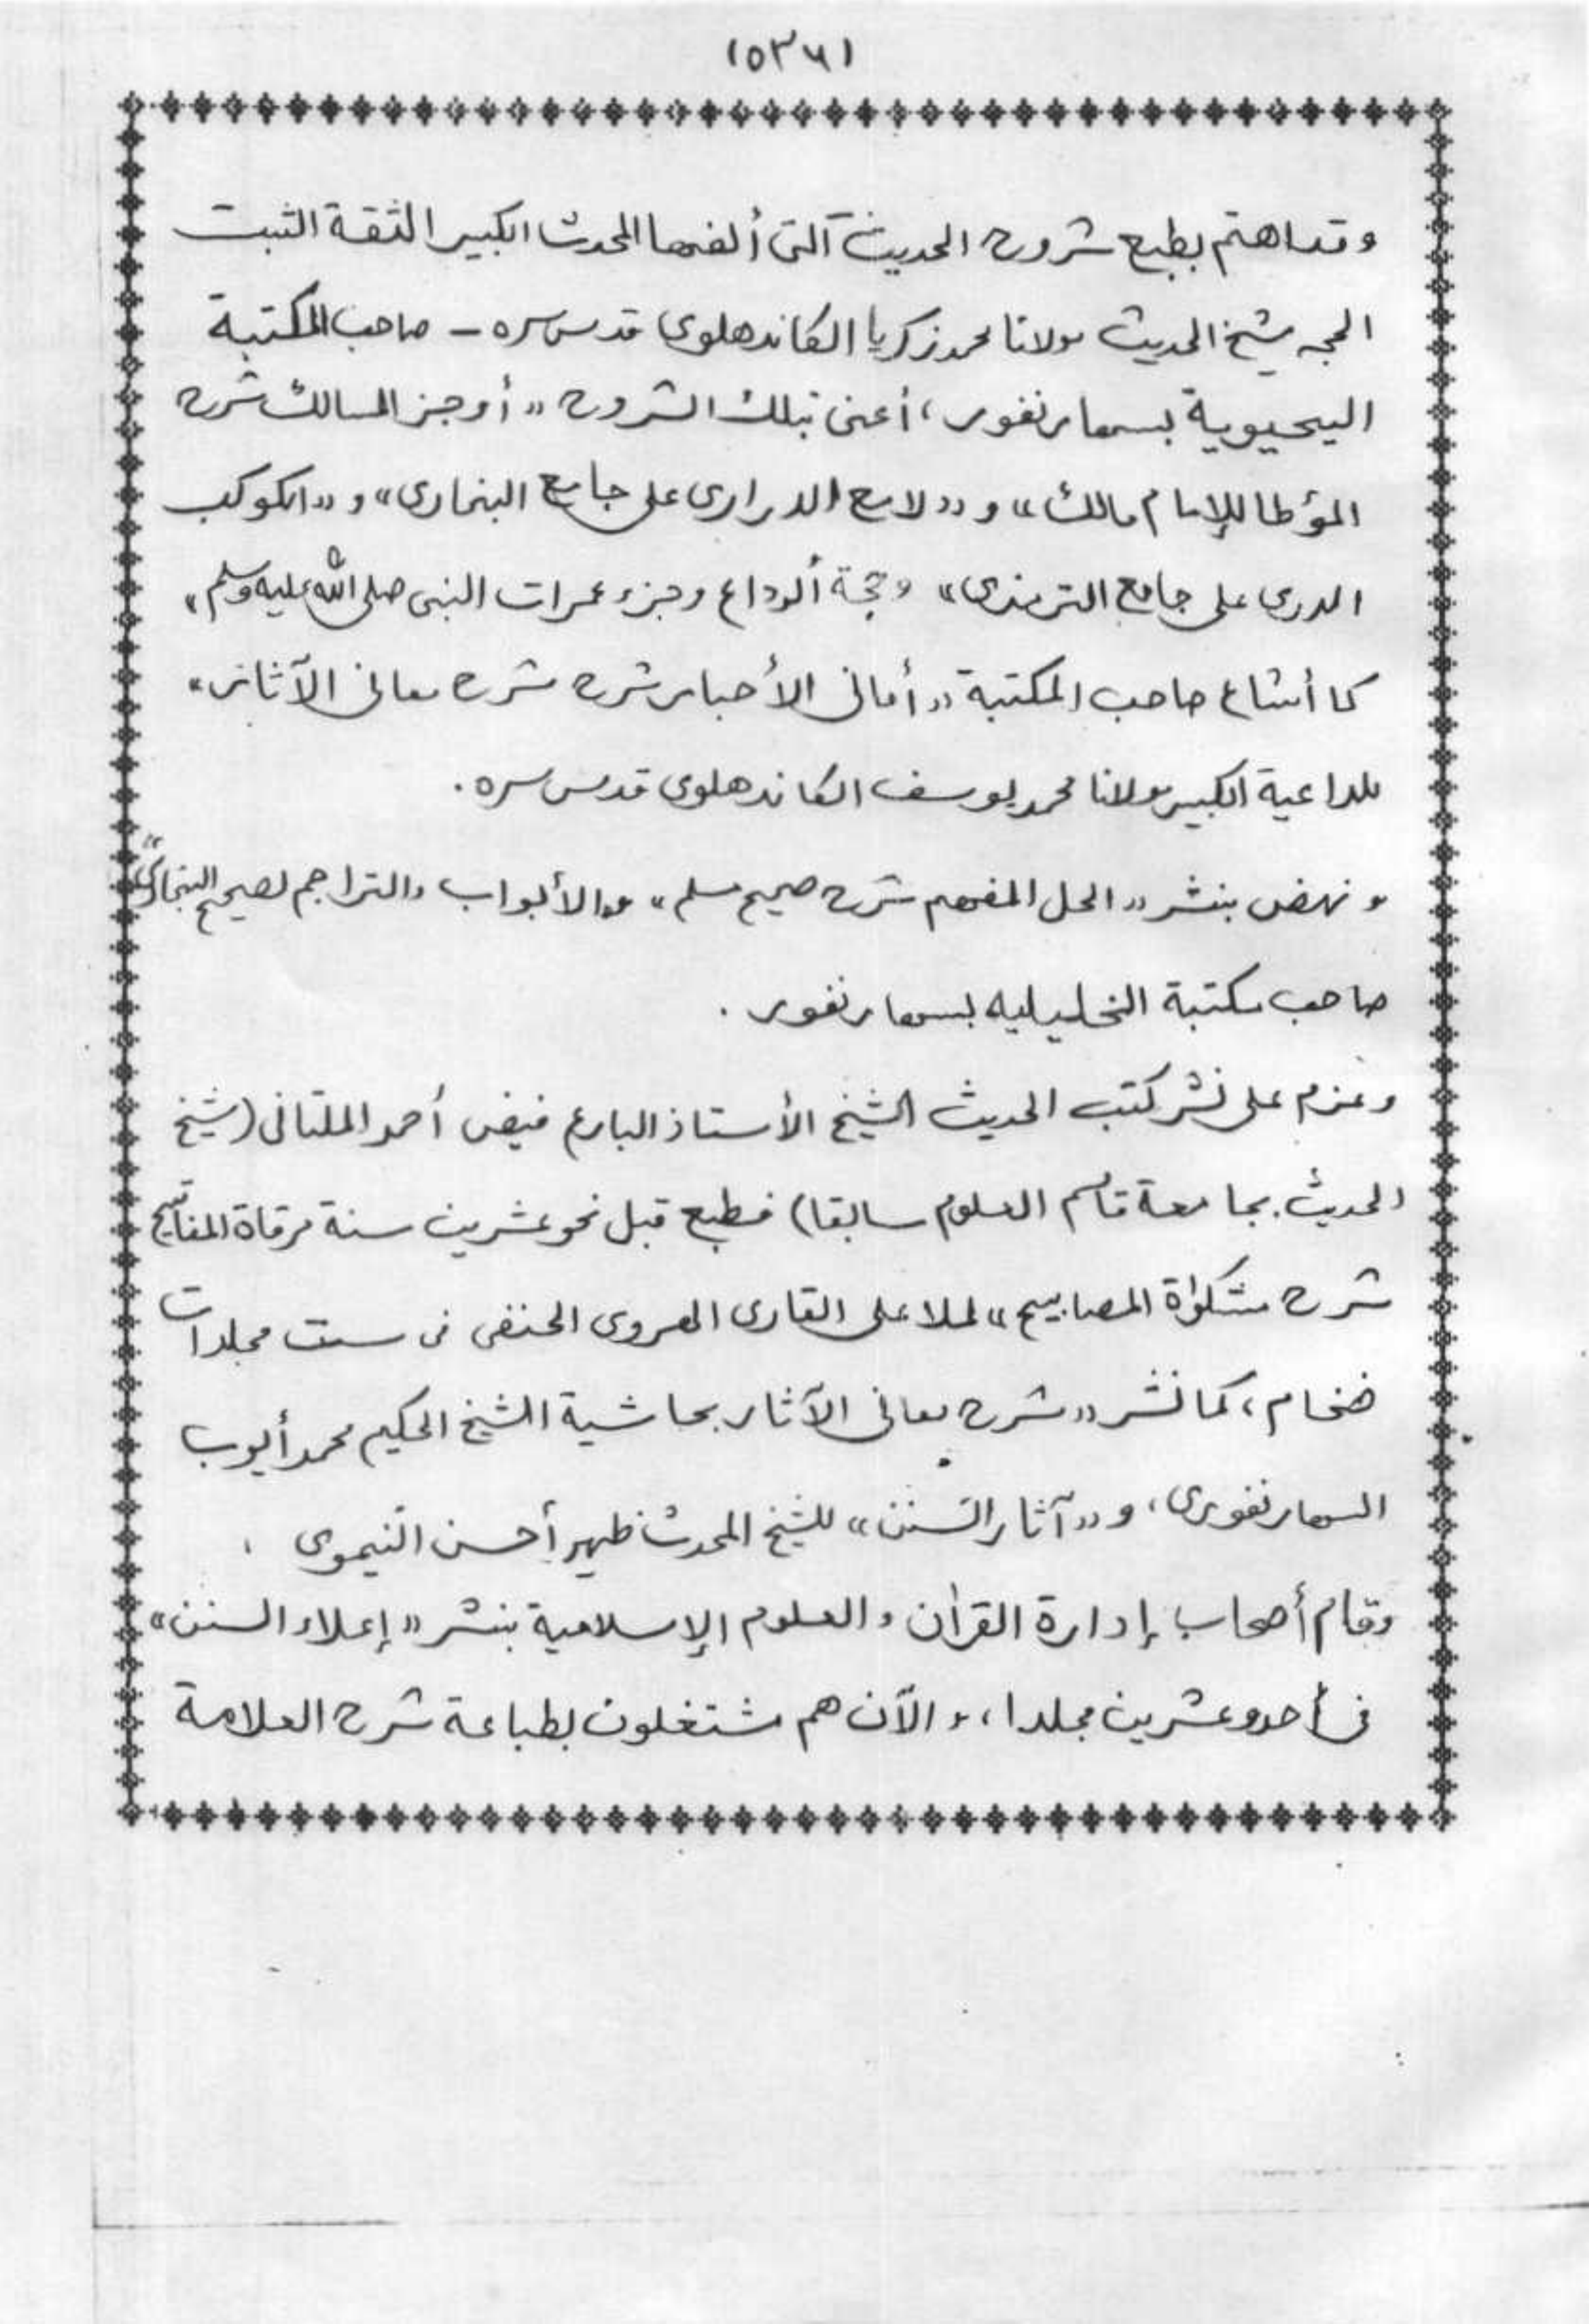 (٥٣٦)
وقد اهتم بطبع شروح الحديث التى ألفها المحدث الكبير الثقة الثبت
الحجه شيخ الحديث مولانا محمد زكريا الكاندهلوى قدس سره - صاحب المكتبة
اليحيوية بسهارنفور، أعنى بتلك الشروح "أوجز المسالك شرح
المؤطا للإمام مالك" و "لامع الدرارى على جامع البخارى" و "الكوكب
الدرى على جامع الترمذى" وحجة الوداع وجزء عمرات النبى صلى الله عليه وسلم"
كما أشاع صاحب المكتبة "أمانى الأحبار شرح شرح معانى الآثار"
للداعية الكبير مولانا محمد يوسف الكاندهلوى قدس سره.
ونهض بنشر "الحل المفهم شرح صحيح مسلم" و"الأبواب والتراجم لصحيح البخارى"
صاحب مكتبة الخليليه بسهارنفور.
وعزم على نشر كتب الحديث الشيخ الأستاذ البارع فيض أحمد الملتانى (شيخ
الحديث بجامعة قاسم العلوم سابقا) فطبع قبل نحو عشرين سنة مرقاة المفاتيح
شرح مشكوٰة المصابيح" لملا على القارى الهروى الحنفى فى ست مجلدات
ضخام، كما نشر "شرح معانى الآثار بحاشية الشيخ الحكيم محمد أيوب
السهارنفورى، و "آثار السنن" للشيخ المحدث ظهير أحسن النيموى.
وقام أصحاب إدارة القرآن والعلوم الإسلامية بنشر "إعلاء السنن"
فى أحد وعشرين مجلدا، والآن هم مشتغلون بطباعة شرح العلامة